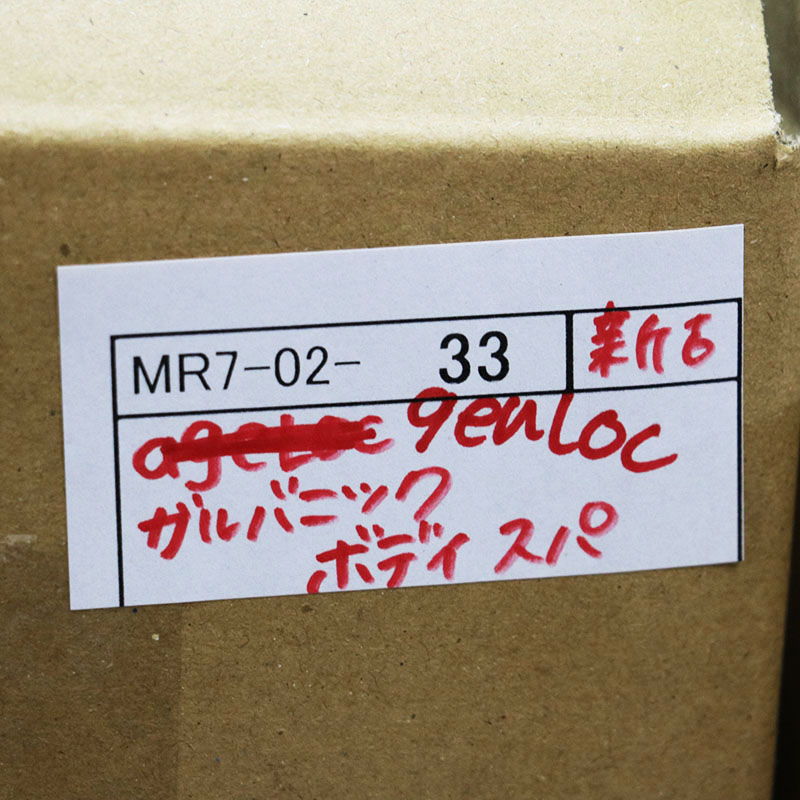 MR7-02- 33 新古
ageLOC genLOC
ガルバニック
ボディ スパ